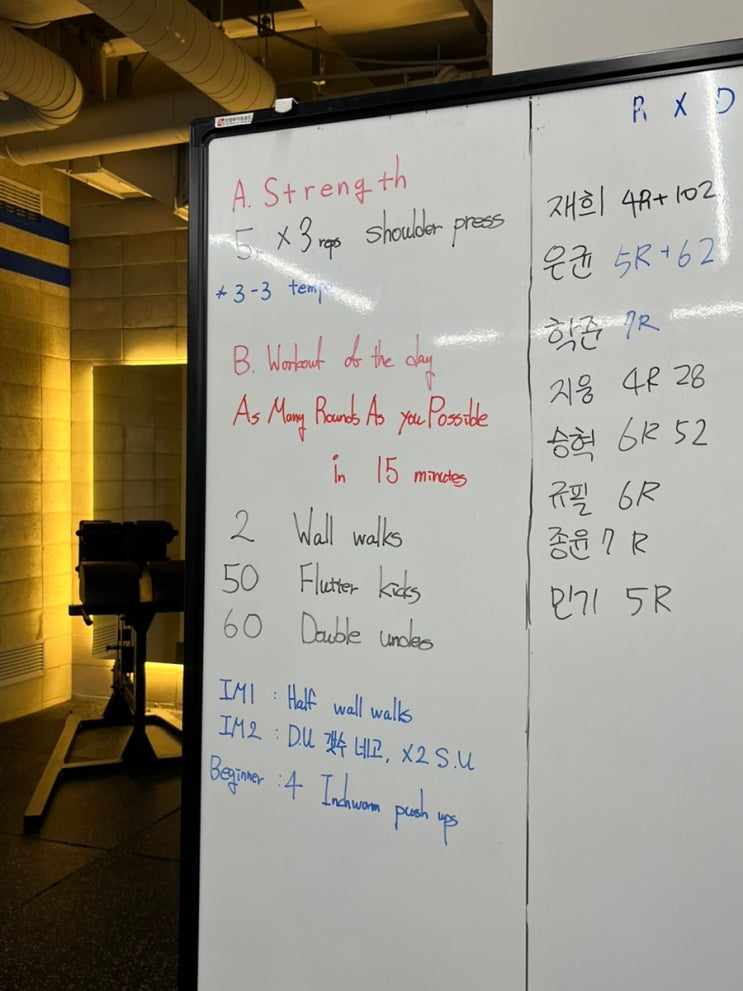 A. Strength
5 x 3 reps shoulder press
* 3-3 temp
B. Workout of the day
As Many Rounds As you Possible
in 15 minutes
2 Wall walks
50 Flutter kicks
60 Double unders
IM1 : Half wall walks
IM2 : D.U 갯수 네고, x2 S.U
Beginner : 4 Inchworm push ups
R X D
재희 4R+102
은균 5R+62
학준 7R
지웅 4R 28
승혁 6R 52
규필 6R
종윤 7R
민기 5R